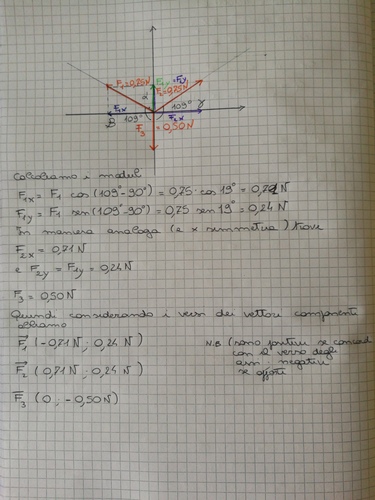 F₁=0,75N
F₁y = F₂y
F₂=0,75N
α
F₁x
109°
γ
β
109°
F₂x
F₃ = 0,50N
Calcoliamo i moduli
F₁x = F₁ cos (109°-90°) = 0,75 cos 19° = 0,71 N
F₁y = F₁ sen (109°-90°) = 0,75 sen 19° = 0,24 N
In maniera analoga (e x simmetria) trovo
F₂x = 0,71 N
e F₂y = F₁y = 0,24N
F₃ = 0,50 N
Quindi considerando i versi dei vettori componenti
abbiamo
F⃗₁ (-0,71 N ; 0,24 N)
F⃗₂ (0,71 N ; 0,24 N)
F⃗₃ (0 ; -0,50N)
N.B. (sono positive se concord
con il verso degli
assi negative
se opposte